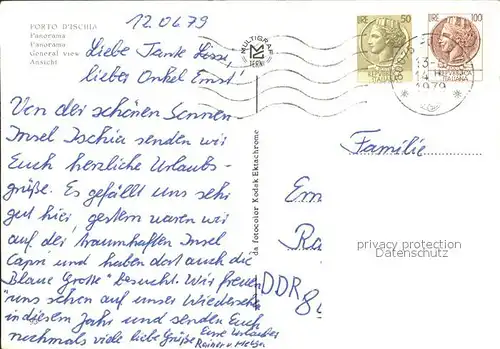 PORTO D'ISCHIA
Panorama
Panorama
General view
Ansicht
12.06.79
Liebe Tante Lissi,
lieber Onkel Ernst!
Von der schönen Sonnen-
Insel Ischia senden wir
Euch herzliche Urlaubs-
grüße. Es gefällt uns sehr
gut hier, gestern waren wir
auf der traumhaften Insel
Capri und haben dort auch die
"Blaue Grotte" besucht. Wir freuen
uns schon auf unser Wiedersehn
in diesem Jahr und senden Euch
nochmals viele liebe Grüße Eure Urlauber
Rainer u. Helga
MULTIGRAF
TERNI
da fotocolor Kodak Ektachrome
LIRE 50
REPVBBLICA
ITALIANA
LIRE 100
REPVBBLICA
ITALIANA
13-6
14
1979
Familie
Ern
Ra
DDR
privacy protection
Datenschutz